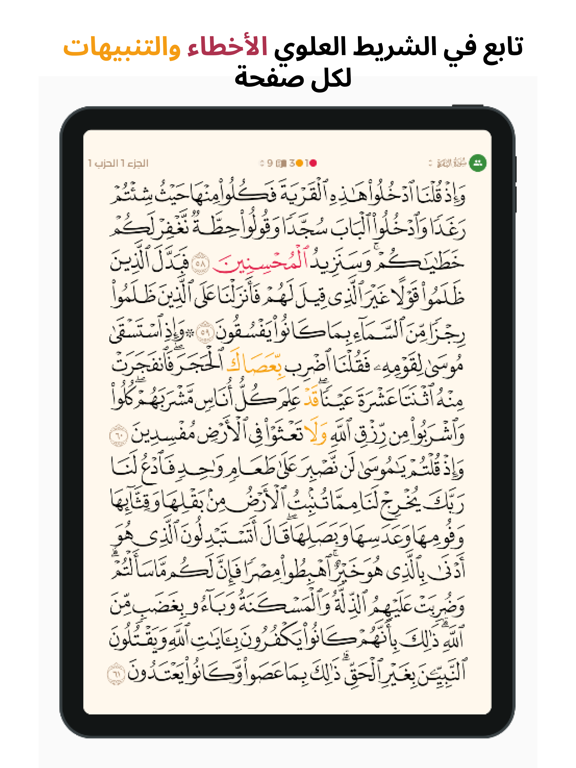 تابع في الشريط العلوي الأخطاء والتنبيهات
لكل صفحة
الجزء 1 الحزب 1
9 3 1
وَإِذْ قُلْنَا ٱدْخُلُوا۟ هَـٰذِهِ ٱلْقَرْيَةَ فَكُلُوا۟ مِنْهَا حَيْثُ شِئْتُمْ
رَغَدًا وَٱدْخُلُوا۟ ٱلْبَابَ سُجَّدًا وَقُولُوا۟ حِطَّةٌ نَّغْفِرْ لَكُمْ
خَطَـٰيَـٰكُمْ ۚ وَسَنَزِيدُ ٱلْمُحْسِنِينَ ٥٨ فَبَدَّلَ ٱلَّذِينَ
ظَلَمُوا۟ قَوْلًا غَيْرَ ٱلَّذِى قِيلَ لَهُمْ فَأَنزَلْنَا عَلَى ٱلَّذِينَ ظَلَمُوا۟
رِجْزًا مِّنَ ٱلسَّمَآءِ بِمَا كَانُوا۟ يَفْسُقُونَ ٥٩ ۞ وَإِذِ ٱسْتَسْقَىٰ
مُوسَىٰ لِقَوْمِهِۦ فَقُلْنَا ٱضْرِب بِّعَصَاكَ ٱلْحَجَرَ ۖ فَٱنفَجَرَتْ
مِنْهُ ٱثْنَتَا عَشْرَةَ عَيْنًا ۖ قَدْ عَلِمَ كُلُّ أُنَاسٍ مَّشْرَبَهُمْ ۖ كُلُوا۟
وَٱشْرَبُوا۟ مِن رِّزْقِ ٱللَّهِ وَلَا تَعْثَوْا۟ فِى ٱلْأَرْضِ مُفْسِدِينَ ٦٠
وَإِذْ قُلْتُمْ يَـٰمُوسَىٰ لَن نَّصْبِرَ عَلَىٰ طَعَامٍ وَٰحِدٍ فَٱدْعُ لَنَا
رَبَّكَ يُخْرِجْ لَنَا مِمَّا تُنۢبِتُ ٱلْأَرْضُ مِنۢ بَقْلِهَا وَقِثَّآئِهَا
وَفُومِهَا وَعَدَسِهَا وَبَصَلِهَا ۖ قَالَ أَتَسْتَبْدِلُونَ ٱلَّذِى هُوَ
أَدْنَىٰ بِٱلَّذِى هُوَ خَيْرٌ ۚ ٱهْبِطُوا۟ مِصْرًا فَإِنَّ لَكُم مَّا سَأَلْتُمْ ۗ
وَضُرِبَتْ عَلَيْهِمُ ٱلذِّلَّةُ وَٱلْمَسْكَنَةُ وَبَآءُو بِغَضَبٍ مِّنَ
ٱللَّهِ ۗ ذَٰلِكَ بِأَنَّهُمْ كَانُوا۟ يَكْفُرُونَ بِـَٔايَـٰتِ ٱللَّهِ وَيَقْتُلُونَ
ٱلنَّبِيِّـۧنَ بِغَيْرِ ٱلْحَقِّ ۗ ذَٰلِكَ بِمَا عَصَوا۟ وَّكَانُوا۟ يَعْتَدُونَ ٦١